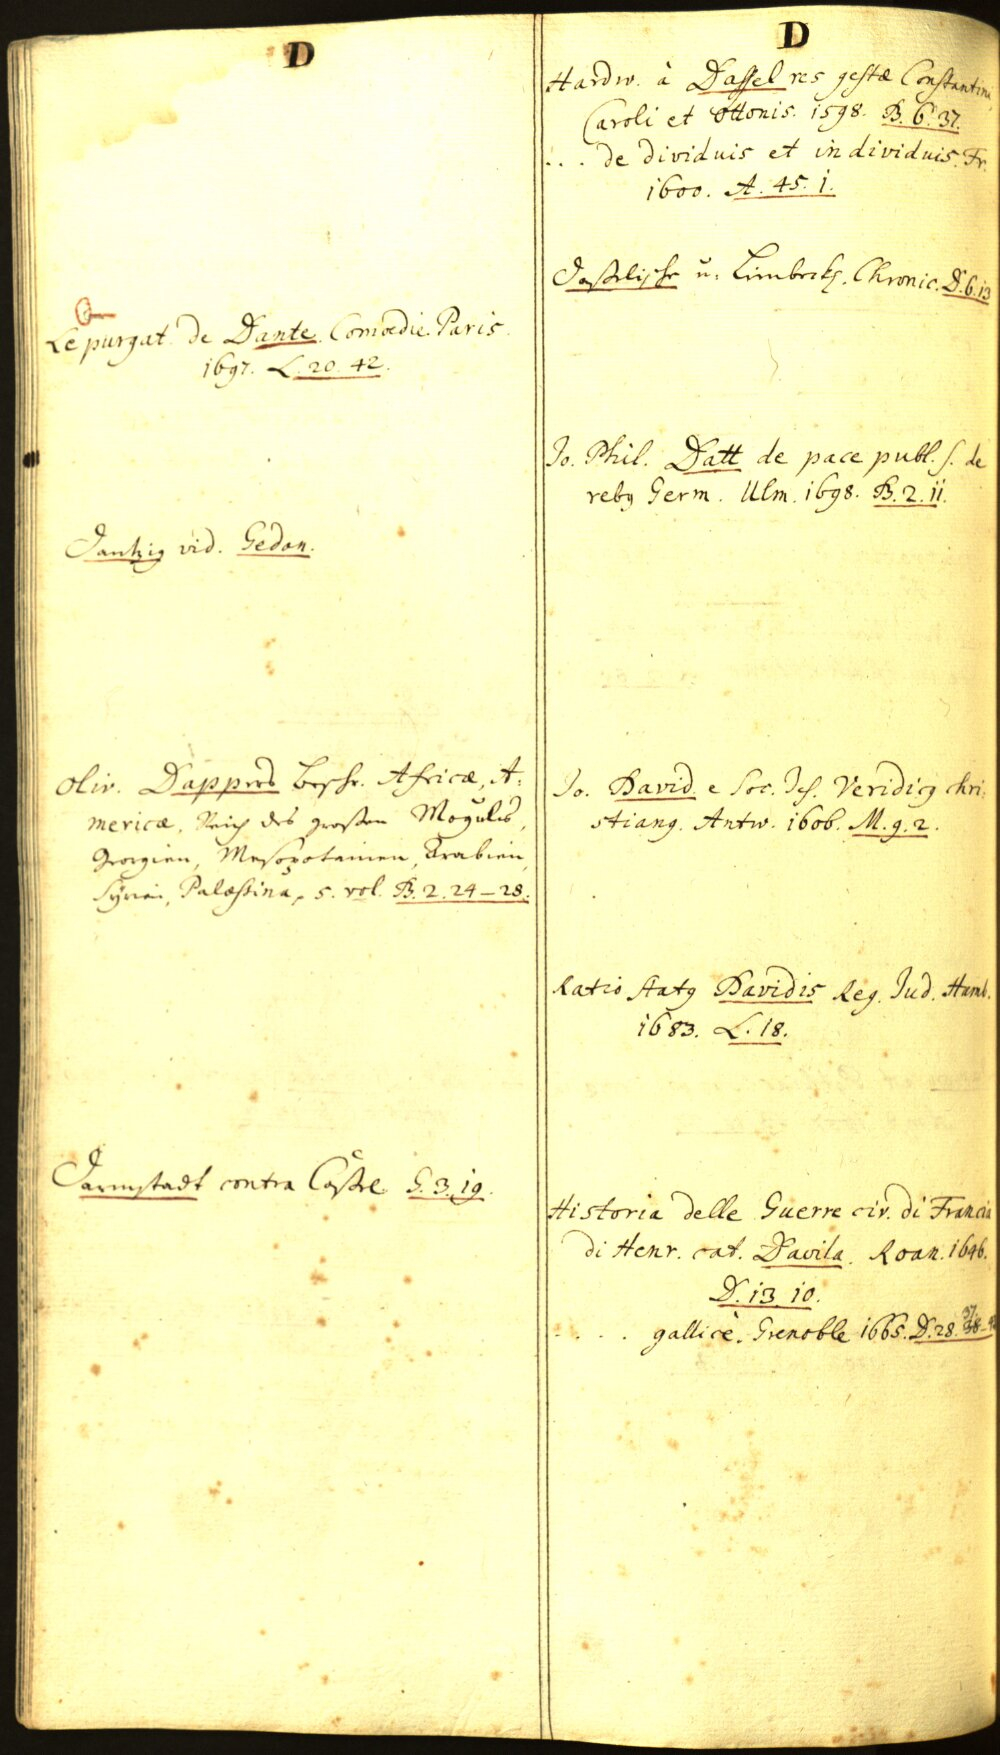 D
Le purgat. de Dante. Comoedie. Paris.
1697. L. 20. 42.
Dantzig vid. Gedan.
Oliv. Dappers Beschr. Africæ, A-
mericæ, Reich des großen Moguls,
Georgien, Mesopotamien, Arabien,
Syrien, Palæstina, 5. vol. B. 2. 24–28.
Darmstadt contra Cassel G. 3. 19.
D
Hardw. à Dassel res gestæ Constantini
Caroli et Ottonis. 1598. B. 6. 37.
. . . de dividuis et individuis. Fr.
1600. A. 45. 1.
Dasselische u. Einbecks. Chronic. D. 6. 13
Jo. Phil. Datt de pace publ. s. de
rebq Germ. Ulm. 1698. B. 2. 11.
Jo. David e Soc. Jes. Veridicq chri-
stianq. Antw. 1606. M. 9. 2.
Ratio statq Davidis Reg. Jud. Hamb.
1683. L. 18.
Historia delle Guerre civ. di Francia
di Henr. cat. Davila. Roan. 1646.
D. 13. 10.
. . . . gallicè. Grenoble 1665. D. 28. 37.